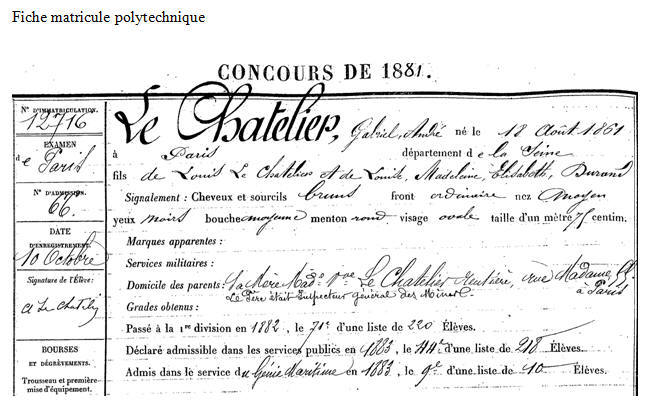 Fiche matricule polytechnique
CONCOURS DE 1881.
N° D'IMMATRICULATION.
12716
EXAMEN
de Paris
N° D'ADMISSION.
66.
DATE
D'ENREGISTREMENT.
10 Octobre
Signature de l'Élève:
A Le Chatelier
BOURSES
ET DÉGRÈVEMENTS.
Trousseau et première
mise d'équipement.
Le Chatelier, Gabriel, André né le 18 Août 1861
à Paris département de la Seine
fils de Louis Le Chatelier et de Louise, Madeleine, Elisabeth, Durand
Signalement : Cheveux et sourcils bruns front ordinaire nez moyen
yeux noirs bouche moyenne menton rond visage ovale taille d'un mètre 75 centim.
Marques apparentes :
Services militaires :
Domicile des parents: Sa Mère Mad° Vve Le Chatelier rentière, rue Madame,
à Paris
Le Père était Inspecteur général des Mines.
Grades obtenus :
Passé à la 1re division en 1882, le 71e d'une liste de 220 Élèves.
Déclaré admissible dans les services publics en 1883, le 44e d'une liste de 218 Élèves.
Admis dans le service du Génie Maritime en 1883, le 9e d'une liste de 10 Élèves.